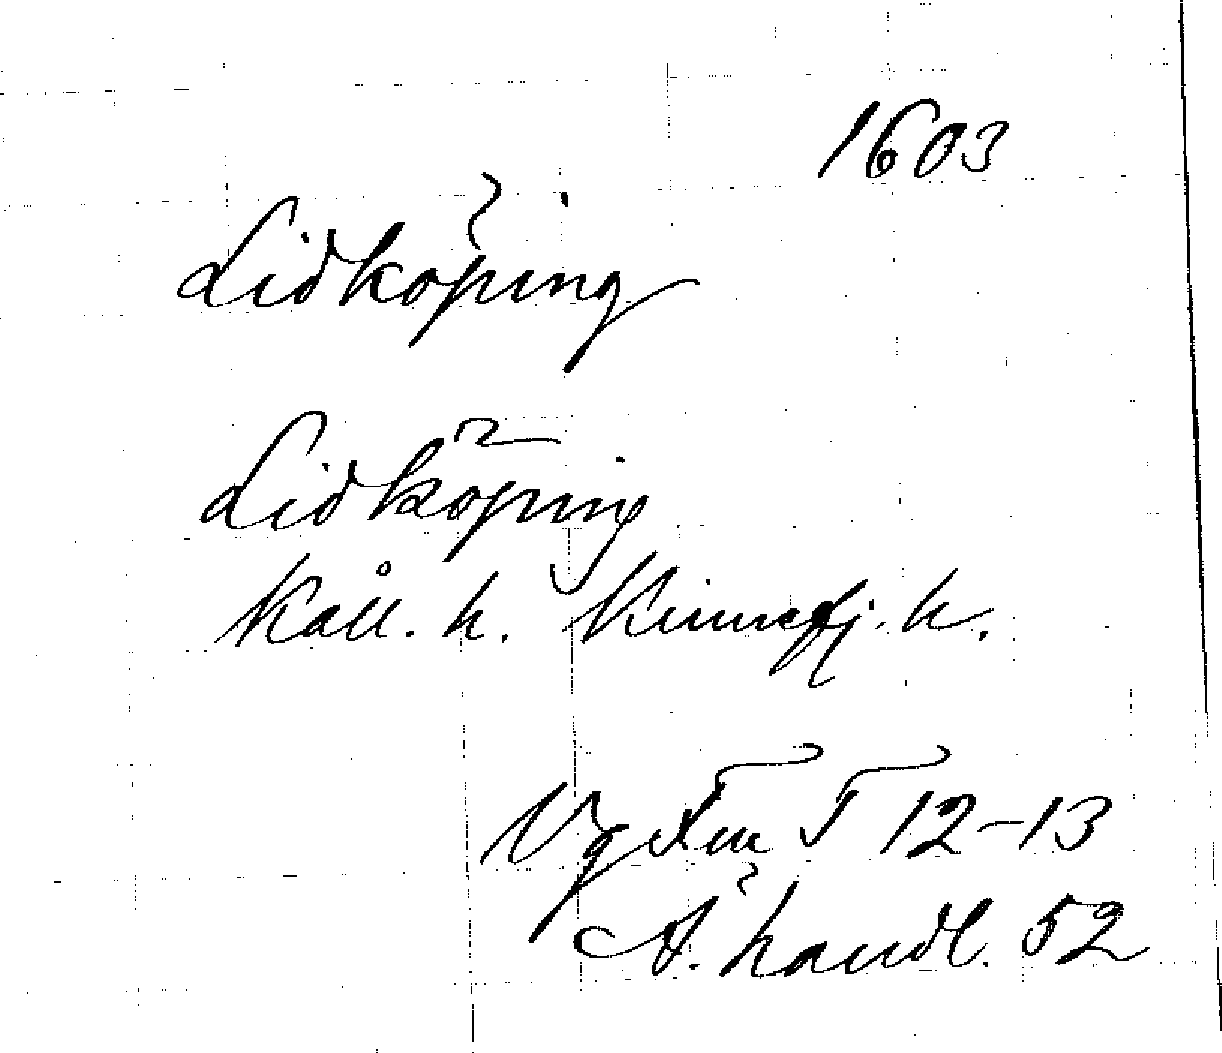 1603
Lidköping
Lidköping
Kåll. h. Kinnefj. h.
Vg Fm T 12-13
A. handl. 52